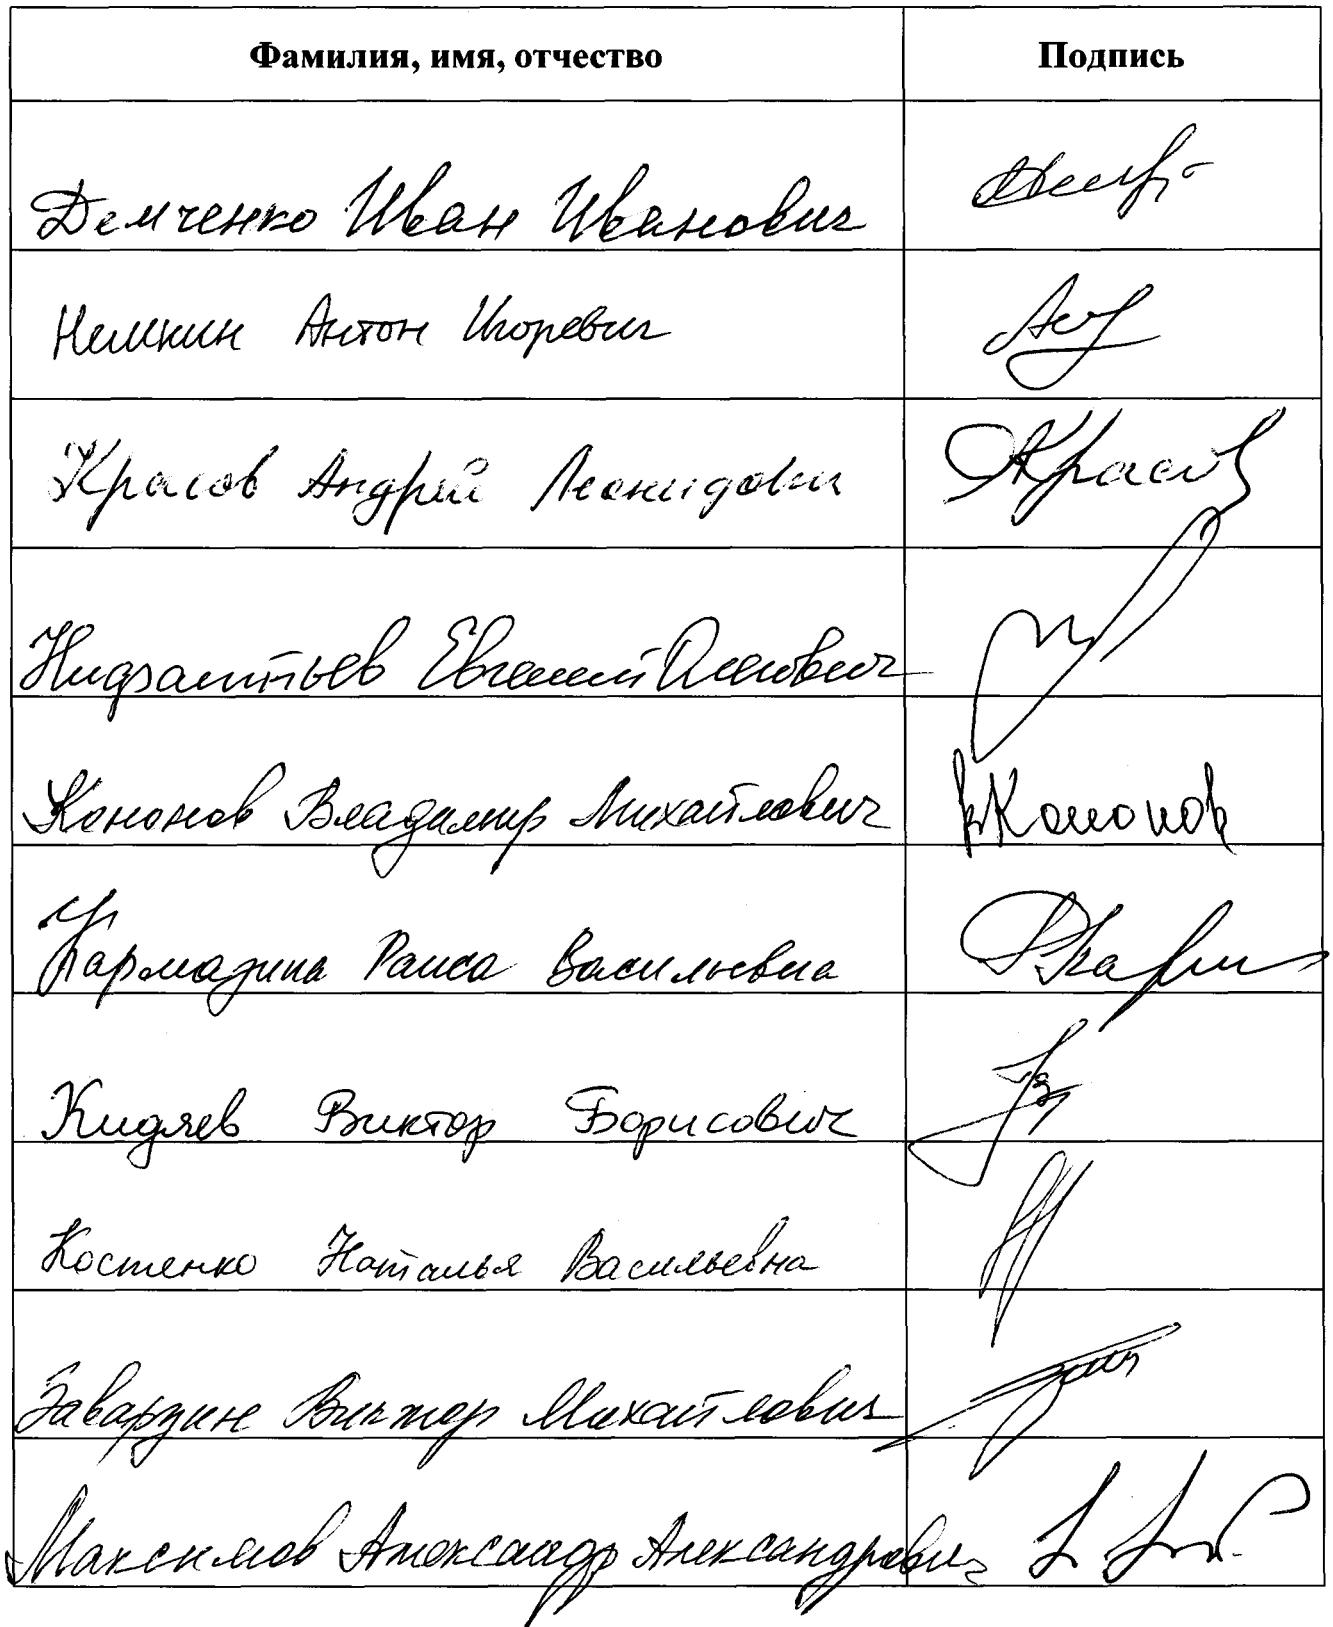 Фамилия, имя, отчество Подпись
Демченко Иван Иванович
Немкин Антон Игоревич
Красов Андрей Леонидович Красов
Евгений Олегович
Кононов Владимир Михайлович Кононов
Кармазина Раиса Васильевна
Кидяев Виктор Борисович
Костенко Наталья Васильевна
Заварзин Виктор Михайлович
Максимов Александр Александрович